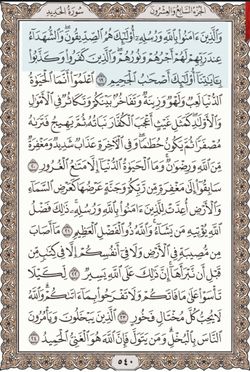 الجزء السابع والعشرون سورة الحديد
والذين ءامنوا بالله ورسله أولئك هم الصديقون والشهداء
عند ربهم لهم أجرهم ونورهم والذين كفروا وكذبوا
بـٔايتنا أولئك أصحاب الجحيم ١٩ اعلموا أنما الحيوة
الدنيا لعب ولهو وزينة وتفاخر بينكم وتكاثر في الأمول
والأولد كمثل غيث أعجب الكفار نباته ثم يهيج فترىه
مصفرا ثم يكون حطما وفي الءاخرة عذاب شديد ومغفرة
من الله ورضون وما الحيوة الدنيا إلا متع الغرور ٢٠
سابقوا إلى مغفرة من ربكم وجنة عرضها كعرض السماء
والأرض أعدت للذين ءامنوا بالله ورسله ذلك فضل
الله يؤتيه من يشاء والله ذو الفضل العظيم ٢١ ما أصاب
من مصيبة في الأرض ولا في أنفسكم إلا في كتب من
قبل أن نبرأها إن ذلك على الله يسير ٢٢ لكيلا
تأسوا على ما فاتكم ولا تفرحوا بما ءاتىكم والله
لا يحب كل مختال فخور ٢٣ الذين يبخلون ويأمرون
الناس بالبخل ومن يتول فإن الله هو الغني الحميد ٢٤
٥٤٠